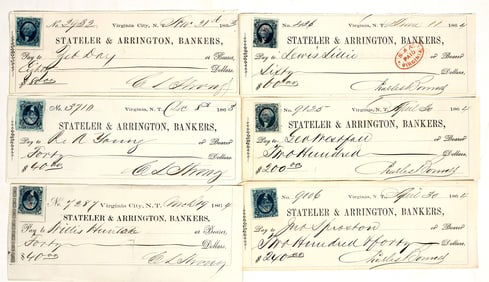 No. 2932 Virginia City, N.T. Nov 21st 1863
STATELER & ARRINGTON, BANKERS,
Pay to Geo Day or Bearer,
Eighty Dollars.
$80.00 C L Strong
No. Virginia, N.T. June 11 1864
STATELER & ARRINGTON, BANKERS,
Pay to Lewis or Bearer
Sixty Dollars,
$60.00 Charles Bonner
PAID
VIRGINIA
No. 3910 Virginia, N.T. Dec 8th 1863
STATELER & ARRINGTON, BANKERS,
Pay to R. N. Young or Bearer
Forty Dollars,
$40.00 C L Strong
No. 9125 Virginia, N.T. April 30 1864
STATELER & ARRINGTON, BANKERS,
Pay to Geo Westfall or Bearer
Two Hundred Dollars,
$200.00 Charles Bonner
No. 7287 Virginia City, N.T. 1864
STATELER & ARRINGTON, BANKERS,
Pay to Willis or Bearer,
Forty Dollars,
$40.00 C L Strong
No. 9106 Virginia, N.T. April 30 1864
STATELER & ARRINGTON, BANKERS,
Pay to Jno Sproston or Bearer
Two Hundred & forty Dollars,
$240.00 Charles Bonner